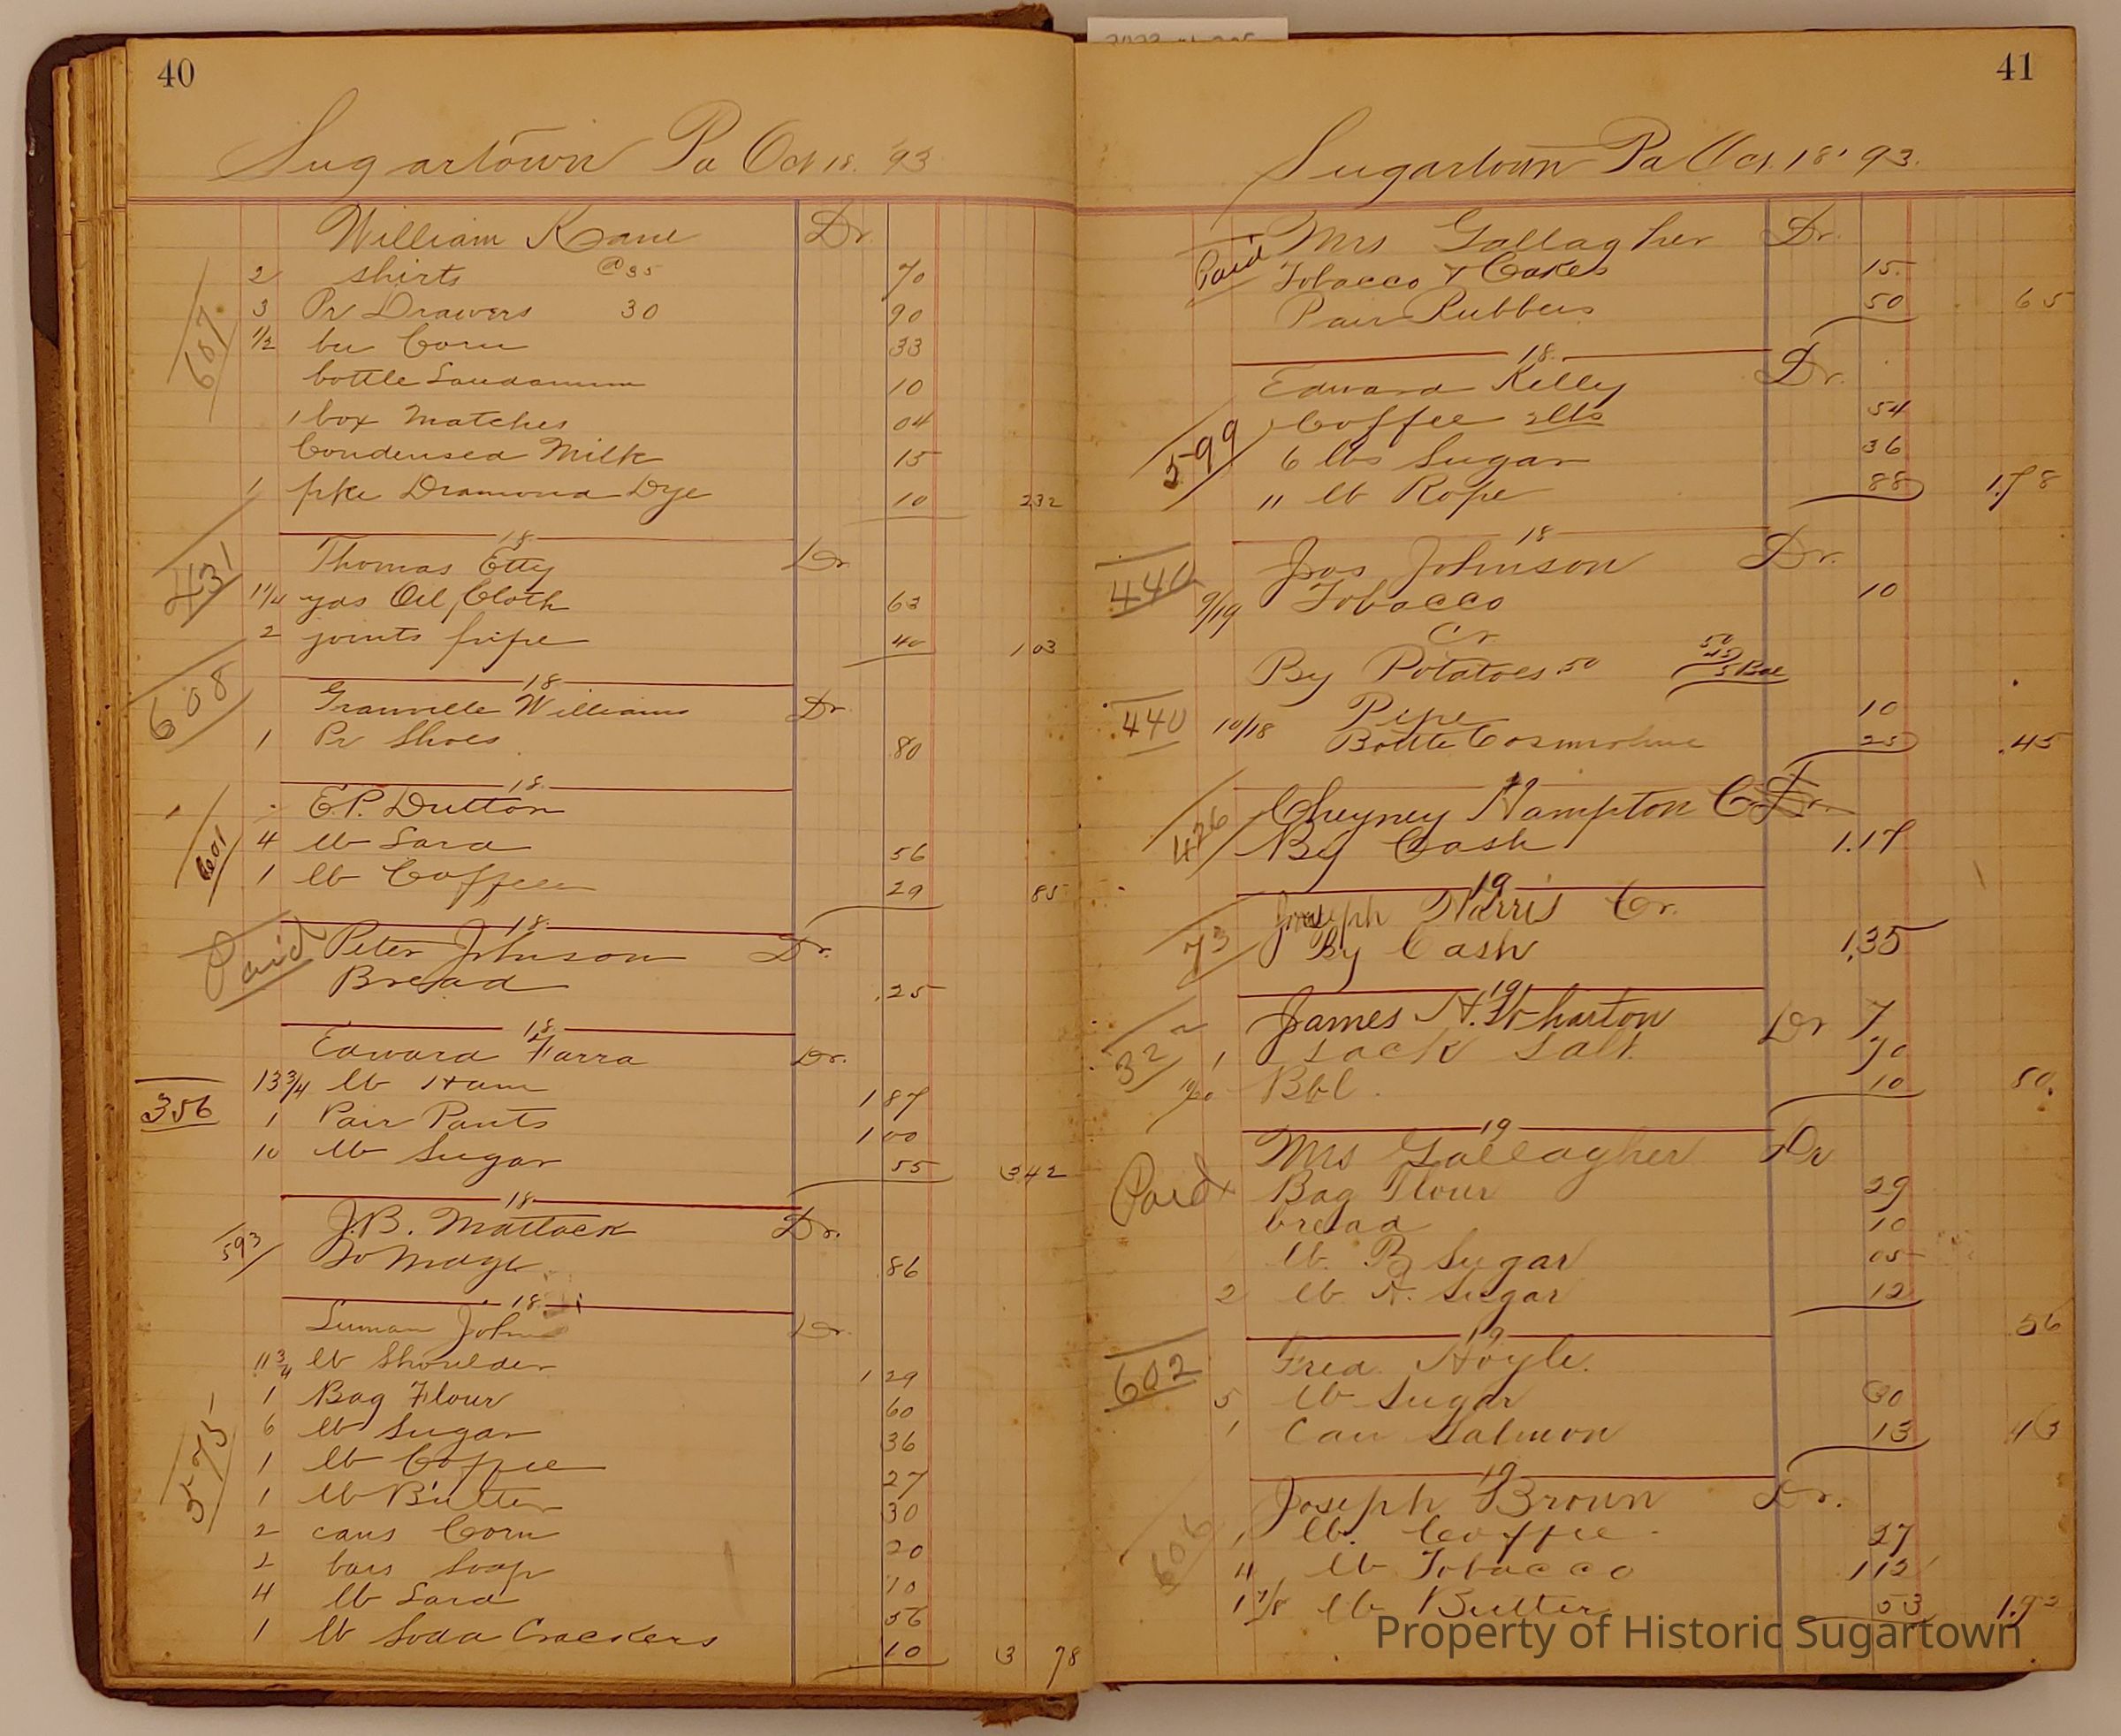 40
Sugartown Pa Oct 18. '93
William Kane Dr.
2 shirts @ 35 70
3 Pr Drawers 30 90
1/2 bu Corn 33
607
bottle Laudanum 10
1 box Matches 04
Condensed Milk 15
1 pke Diamond Dye 10 232
18
Thomas Etty Dr
431
1 1/4 yds Oil Cloth 63
2 joints pipe 40 1 03
18
608
Granville Williams Dr.
1 Pr Shoes 80
18
E.P. Dutton
601
4 lb Lard 56
1 lb Coffee 29 85
18
Paid
Peter Johnson Dr.
Bread .25
18
Edward Farra Dr.
13 3/4 lb Ham 1 87
356
1 Pair Pants 1 00
10 lb Sugar 55 3 42
18
J.B. Matlack Dr.
593
To Mdge .86
18
John Dr.
11 3/4 lb Shoulder 1 29
1 Bag Flour 60
6 lb Sugar 36
575
1 lb Coffee 27
1 lb Butter 30
2 cans Corn 20
2 bars Soap 10
4 lb Lard 56
1 lb Soda Crackers 10 3 78
41
Sugartown Pa Oct. 18' 93.
Mrs Gallagher Dr.
Paid
Tobacco & Cakes 15.
Pair Rubbers 50 65
18.
Edward Kelly Dr.
Coffee 2lbs 54
599
6 lbs Sugar 36
11 lb Rope 88 1.78
18
Jos Johnson Dr.
440
9/19 Tobacco 10
Cr.
By Potatoes .50 50 45 5 Bal
440
10/18 Pipe 10
Bottle Cosmoline 25 .45
Cheyney Hampton Cr
426
By Cash 1.17
19
Joseph Norris Cr.
73
By Cash 1.35
19
James H. Wharton Dr
32
1 sack Salt 70
Bbl. 10 80.
19
Mrs Gallagher Dr
Paid
Bag Flour 29
bread 10
lb. B Sugar 05
2 lb A. Sugar 12
56
19
Fred Hoyle.
602
5 lb Sugar 30
1 Can Salmon 13 43
19
Joseph Brown Dr.
606
1 lb. Coffee 27
4 lb Tobacco 1 12
1 7/8 lb Butter 53 1.92
Property of Historic Sugartown